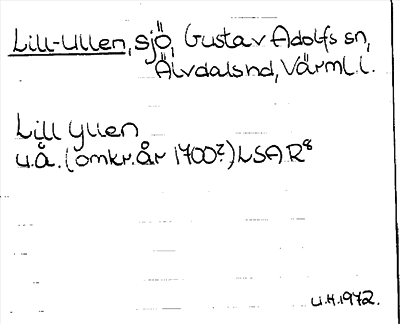 Lill-Ullen, sjö, Gustav Adolfs sn,
Älvdals hd, Värml. l.
Lill Yllen
u.å. (omkr. år 1700?) LSA R8
U.H. 1972.